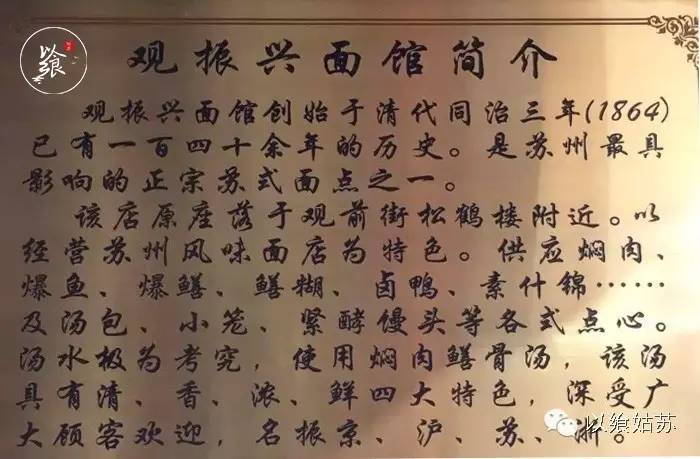 以飨
观振兴面馆简介
观振兴面馆创始于清代同治三年(1864)
已有一百四十余年的历史。是苏州最具
影响的正宗苏式面点之一。
该店原座落于观前街松鹤楼附近。以
经营苏州风味面店为特色。供应焖肉、
爆鱼、爆鳝、鳝糊、卤鸭、素什锦……
及汤包、小笼、紧酵馒头等各式点心。
汤水极为考究，使用焖肉鳝骨汤，该汤
具有清、香、浓、鲜四大特色，深受广
大顾客欢迎，名振京、沪、苏、浙。
以飨姑苏